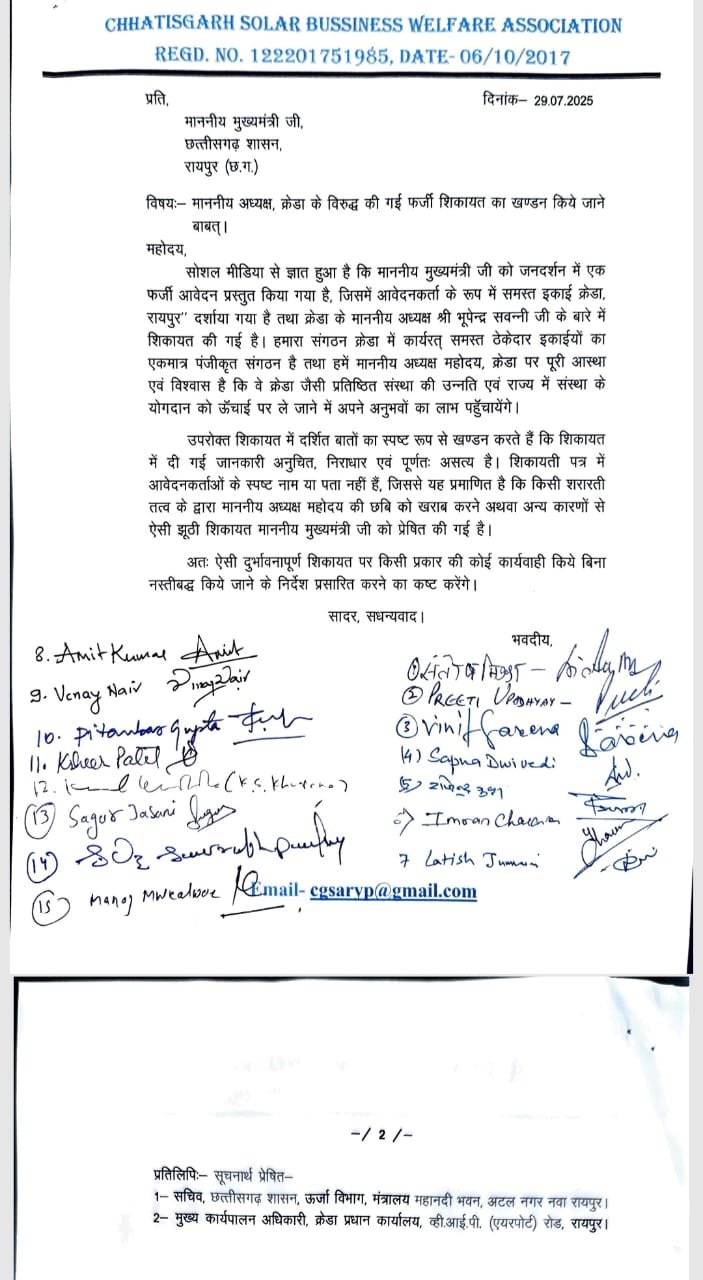 CHHATISGARH SOLAR BUSSINESS WELFARE ASSOCIATION
REGD. NO. 122201751985, DATE- 06/10/2017
प्रति,
दिनांक– 29.07.2025
माननीय मुख्यमंत्री जी,
छत्तीसगढ़ शासन,
रायपुर (छ.ग.)
विषयः– माननीय अध्यक्ष, क्रेडा के विरुद्ध की गई फर्जी शिकायत का खण्डन किये जाने
बाबत्।
महोदय,
सोशल मीडिया से ज्ञात हुआ है कि माननीय मुख्यमंत्री जी को जनदर्शन में एक
फर्जी आवेदन प्रस्तुत किया गया है, जिसमें आवेदनकर्ता के रूप में समस्त इकाई क्रेडा,
रायपुर" दर्शाया गया है तथा क्रेडा के माननीय अध्यक्ष श्री भूपेन्द्र सवन्नी जी के बारे में
शिकायत की गई है। हमारा संगठन क्रेडा में कार्यरत् समस्त ठेकेदार इकाईयों का
एकमात्र पंजीकृत संगठन है तथा हमें माननीय अध्यक्ष महोदय, क्रेडा पर पूरी आस्था
एवं विश्वास है कि वे क्रेडा जैसी प्रतिष्ठित संस्था की उन्नति एवं राज्य में संस्था के
योगदान को ऊँचाई पर ले जाने में अपने अनुभवों का लाभ पहुँचायेंगे।
उपरोक्त शिकायत में दर्शित बातों का स्पष्ट रूप से खण्डन करते हैं कि शिकायत
में दी गई जानकारी अनुचित, निराधार एवं पूर्णतः असत्य है। शिकायती पत्र में
आवेदनकर्ताओं के स्पष्ट नाम या पता नहीं हैं, जिससे यह प्रमाणित है कि किसी शरारती
तत्व के द्वारा माननीय अध्यक्ष महोदय की छबि को खराब करने अथवा अन्य कारणों से
ऐसी झूठी शिकायत माननीय मुख्यमंत्री जी को प्रेषित की गई है।
अतः ऐसी दुर्भावनापूर्ण शिकायत पर किसी प्रकार की कोई कार्यवाही किये बिना
नस्तीबद्ध किये जाने के निर्देश प्रसारित करने का कष्ट करेंगे।
सादर, सधन्यवाद।
भवदीय,
② PREETI UPADHYAY –
③ Vinit
(4) Sapna Dwivedi
Imran
7 Latish
8. Amit Kumar Amit
9. Venay Nair
10. Pitambar Gupta
11. Patel
12.
13 Sagar Jasani
14
15 Manoj
Email- cgsaryp@gmail.com
-/ 2 /-
प्रतिलिपिः– सूचनार्थ प्रेषित–
1– सचिव, छत्तीसगढ़ शासन, ऊर्जा विभाग, मंत्रालय महानदी भवन, अटल नगर नवा रायपुर।
2– मुख्य कार्यपालन अधिकारी, क्रेडा प्रधान कार्यालय, व्ही.आई.पी. (एयरपोर्ट) रोड, रायपुर।